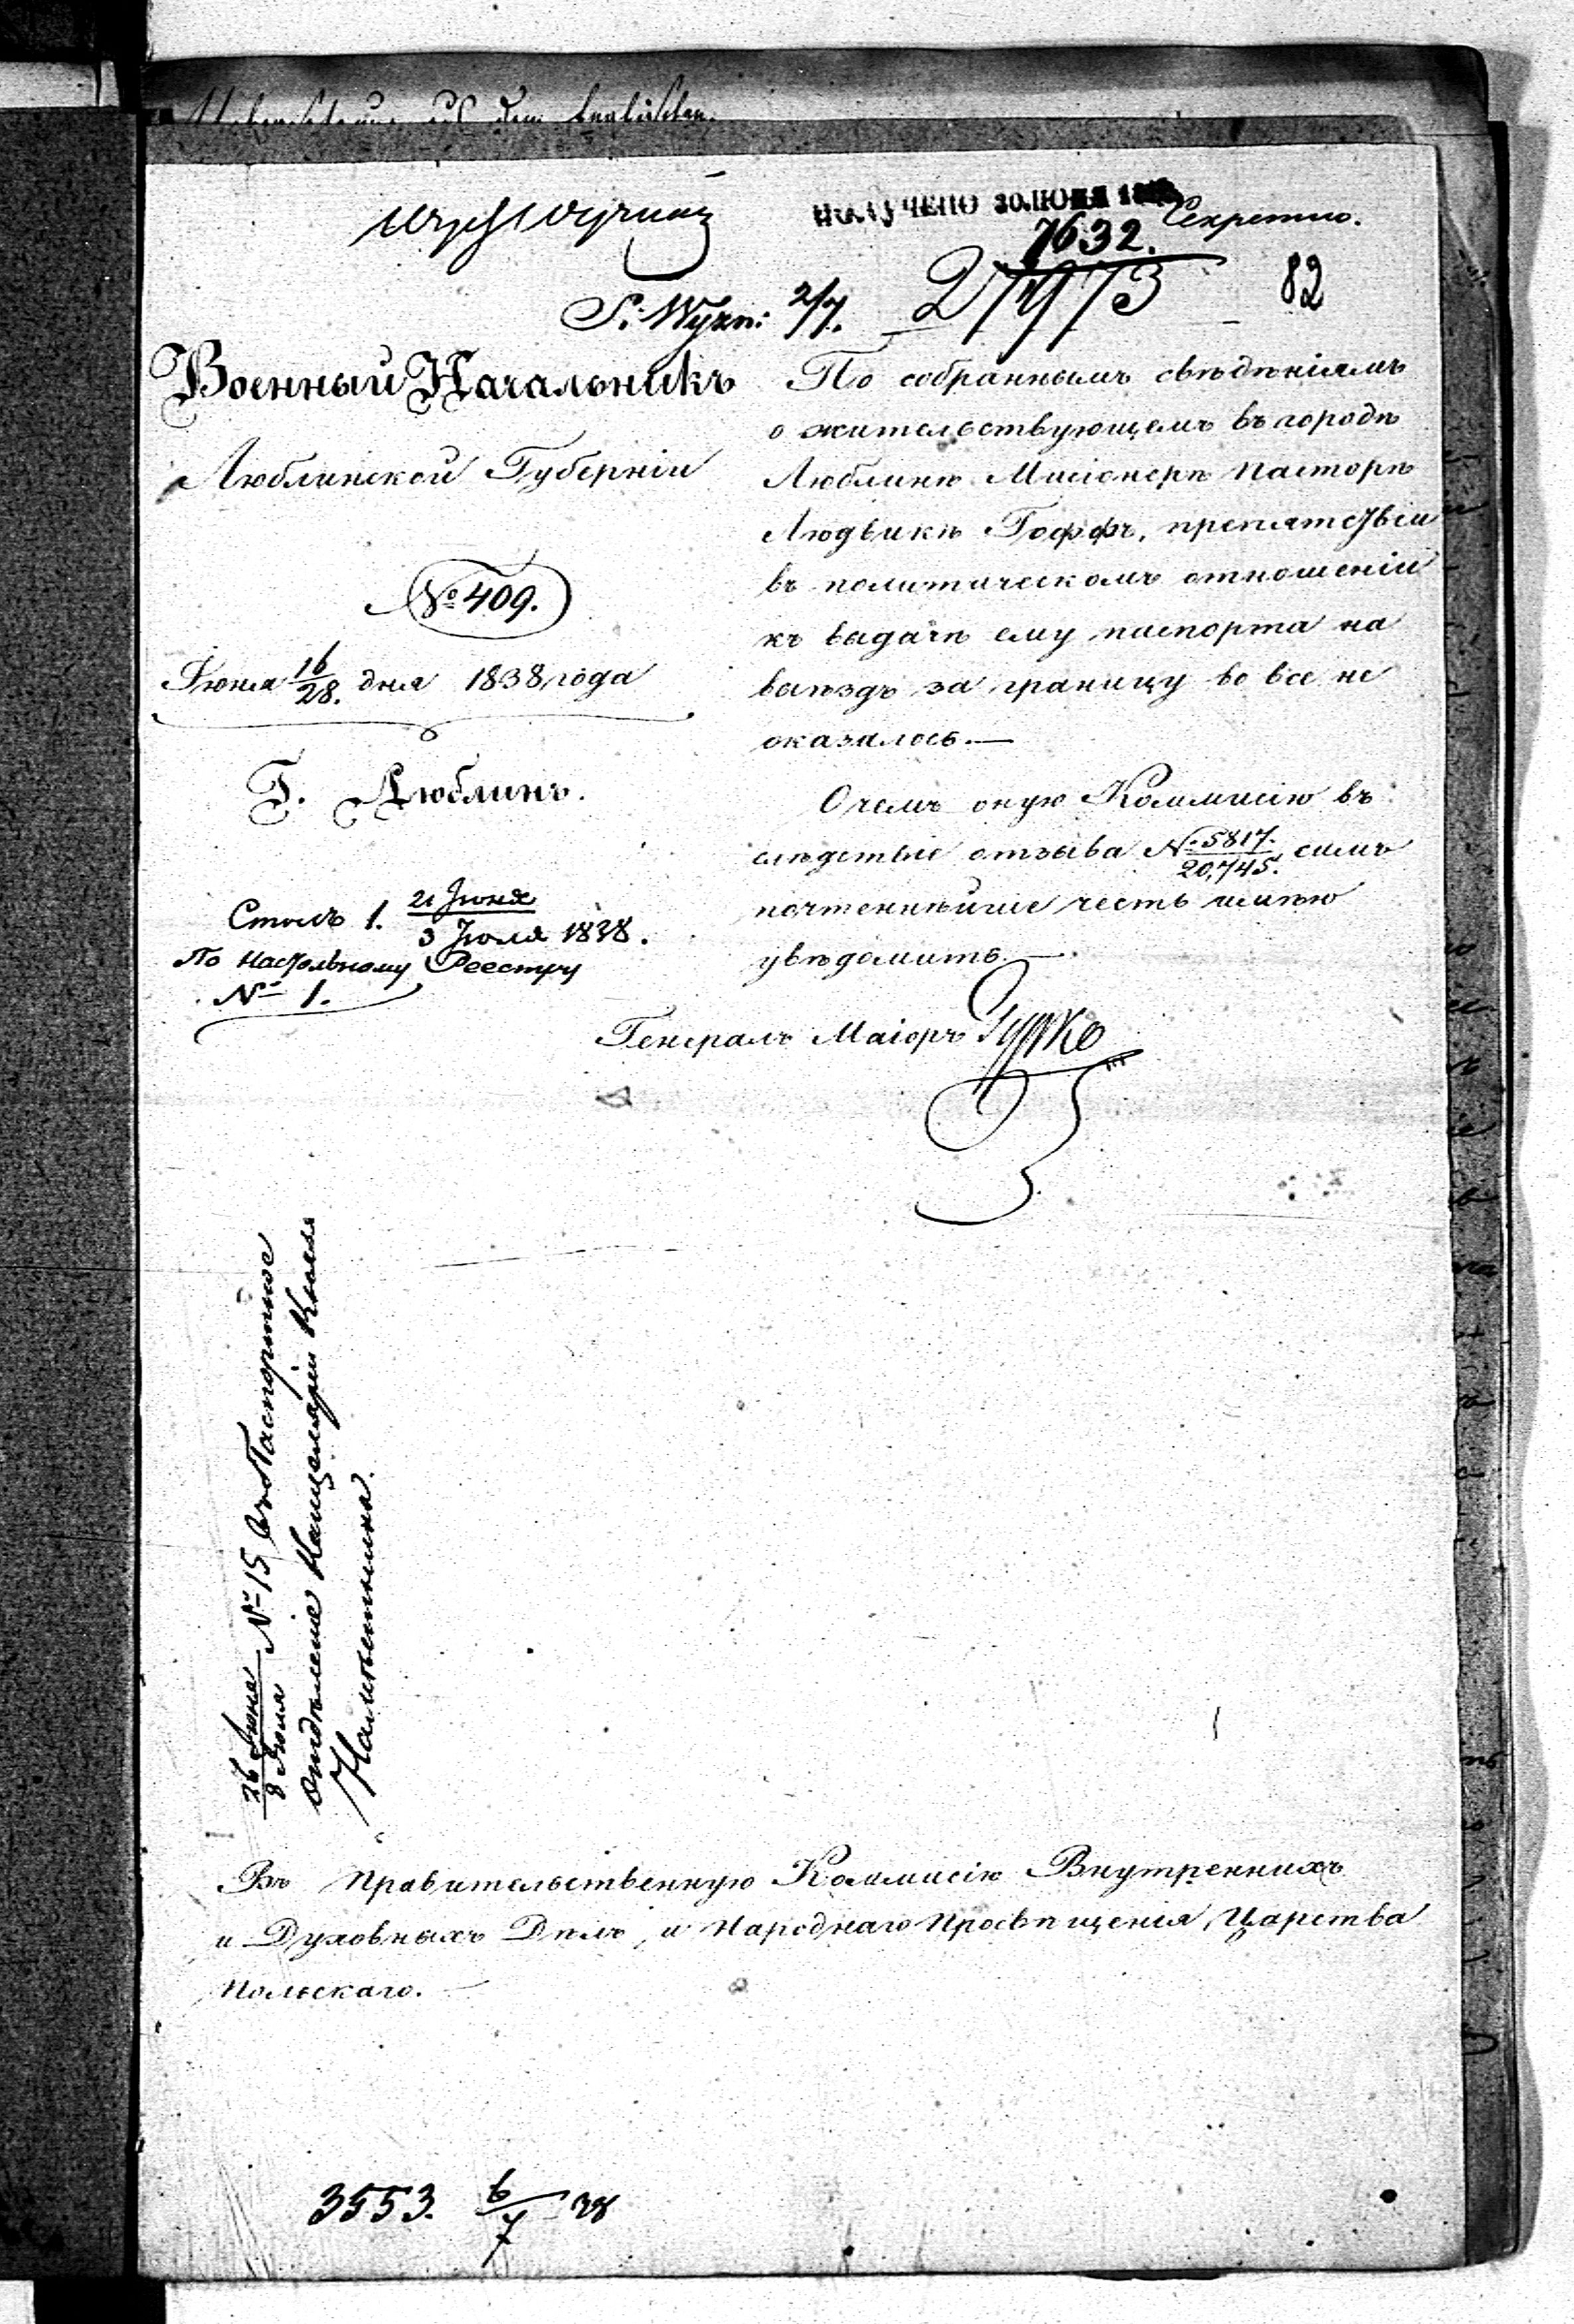 ПОЛУЧЕНО 30 ІЮНЯ
Секретно.
7632.
27973
82
S: Wyzn: 2/7.
Военный Начальникъ
Люблинской Губерніи
№ 409.
Іюня 16/28. дня 1838 года
Г. Люблинъ.
Столъ 1. 21 Іюня / 3 Іюля 1838.
По Настольному Реестру
№ 1.
По собраннымъ свѣдѣніямъ
о жительствующемъ въ городѣ
Люблинѣ Мисіонерѣ Пасторѣ
Людвикѣ Гоффъ, препятствій
въ политическомъ отношеніи
къ выдачѣ ему паспорта на
выѣздъ за границу во все не
оказалось.—
О чемъ оную Коммисію въ
слѣдствіе отзыва № 5817./20,745. симъ
почтеннѣйше честь имѣю
увѣдомить.—
Генералъ Маіоръ Гурко
26 Іюня / 8 Іюля № 15 въ Паспортное
Отдѣленіе Канцеляріи Князя
Намѣстника.
Въ Правительственную Коммисію Внутреннихъ
и Духовныхъ Дѣлъ, и Народнаго Просвѣщенія, Царства
Польскаго.—
3553. 6/7 38